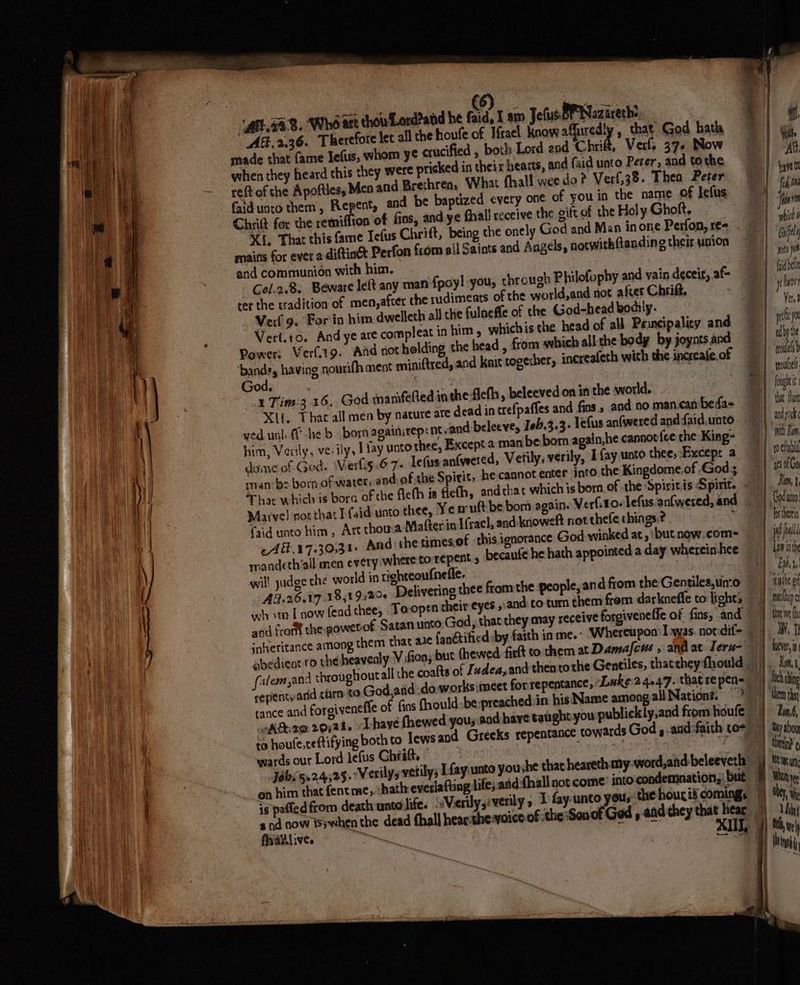 (6)
Act. 22.8. Who art thou Lord? and he ſaid, I am Jeſus Of Nazareth:
Act. 2.36. Therefore let all the houſe of Iſrael know aſſuredly, that God hath
made that ſame Ieſus, whom ye crucified, both Lord and Chriſt, Verſ. 37. Now
when they heard this they were pricked in their hearts, and ſaid unto Peter, and to the
reſt of the Apoſtles, Men and Brethren, What ſhall wee do? Verſ.38. Then Peter
ſaid unto them, Repent, and be baptized every one of you in the name of Ieſus
Chriſt for the remiſſion of ſins, and ye ſhall receive the gift of the Holy Ghoſt.
XI. That this ſame Ieſus Chriſt, being the onely God and Man in one Perſon, re-
mains for ever a diſtinct Perſon from all Saints and Angels, notwithſtanding their union
and communion with him.
Col.2.8. Beware leſt any man ſpoyl you, through Philoſophy and vain deceit, af-
ter the tradition of men, after the rudiments of the world, and not after Chriſt.
Verſ 9. For in him dwelleth all the fulneſſe of the God-head bodily.
Verſ.10. And ye are compleat in him, which is the head of all Principality and
Power. Verſ.19. And not holding the head, from which all the body by joynts and
bands, having nouriſhment miniſtred, and knit together, increaſeth with the increaſe of
God.
1 Tim.3 16. God manifeſted in the fleſh, beleeved on in the world.
XII. That all men by nature are dead in treſpaſſes and ſins, and no man can be ſa-
ved unleſſe he b born again, repent, and beleeve, Joh.3.3. Ieſus anſwered and ſaid unto
him, Verily, verily, I ſay unto thee, Except a man be born again, he cannot ſee the King-
dome of God. Verſ.5.6 7. Ieſus anſwered, Verily, verily, I ſay unto thee, Except a
man be born of water, and of the Spirit, he cannot enter into the Kingdome of God;
That which is born of the fleſh is fleſh, and that which is born of the Spirit is Spirit.
Marvel not that I ſaid unto thee, Ye muſt be born again. Verſ.10. Ieſus anſwered, and
ſaid unto him, Art thou a Maſter in Iſrael, and knoweſt not theſe things?
Act.17.30.31. And the times of this ignorance God winked at, but now com-
mandeth all men every where to repent, becauſe he hath appointed a day wherein hee
will judge the world in righteouſneſſe.
Act.26.17.18,19,20. Delivering thee from the people, and from the Gentiles, unto
whom I now ſend thee, To open their eyes, and to turn them from darkneſſe to light,
and from the power of Satan unto God, that they may receive forgiveneſſe of ſins, and
inheritance among them that are ſanctified by faith in me. Whereupon I was not diſ-
obedient to the heavenly Viſion, but ſhewed firſt to them at Damaſcus, and at Ieru-
ſalem, and throughout all the coaſts of Iudea, and then to the Gentiles, that they ſhould
repent, and turn to God, and do works meet for repentance, Luke 24.47. that repen-
tance and forgiveneſſe of ſins ſhould be preached in his Name among all Nations.
Act.20 20,21. I have ſhewed you, and have taught you publickly, and from houſe
to houſe, teſtifying both to Iews and Greeks repentance towards God, and faith to-
wards our Lord Ieſus Chriſt.
Joh. 5.24,25. Verily, verily, I ſay unto you, he that heareth my word, and beleeveth
on him that ſent me, hath everlaſting life, and ſhall not come into condemnation, but
is paſſed from death unto life. Verily, verily, I ſay unto you, the hour is coming,
and now is, when the dead ſhall hear the voice of the Son of God, and they that hear
ſhall live.
XIII.